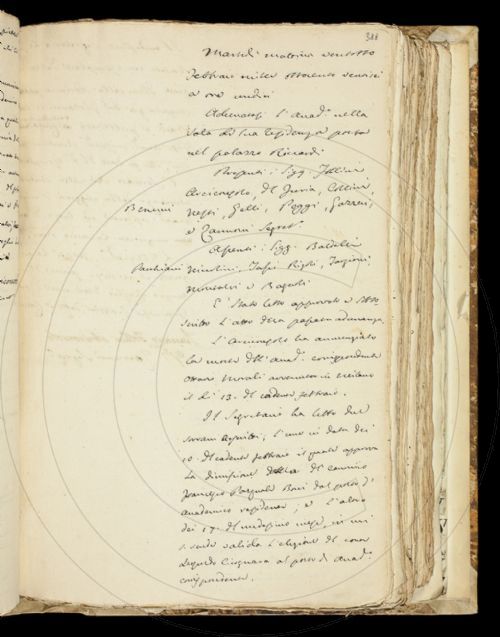 311
Martedì mattina ventotto
Febbraio mille ottocento ventisei
a ore undici
Adunatasi l'Accad.ª nella
Sala di sua residenza posta
nel palazzo Riccardi
Presenti i Sigg.
Arciconsolo, Del Furia, Collini
Bencini
Nesti, Gelli, Poggi,
e Zannoni Segret.
Assenti i Sigg. Baldelli
Niccolini, Rigoli, Targioni
e Bagnoli
È stato letto approvato e
scritto l'atto della passata adunanza.
L'Arciconsolo ha annunziato
la morte dell'Accad.º corrispondente
Morali avvenuta in Milano
il dì 13. del cadente febbraio.
Il Segretario ha letto due
Sovrani, l'uno in data dei
10. del cadente febbraio il quale approva
la dimissione del canonico
Francesco Pasquale Bini dal posto d'
Accademico residente; e l'altro
dei 17. del medesimo mese, in cui
valida l'elezione del conte
Leopoldo Cicognara al posto di Accad.º
corrispondente.